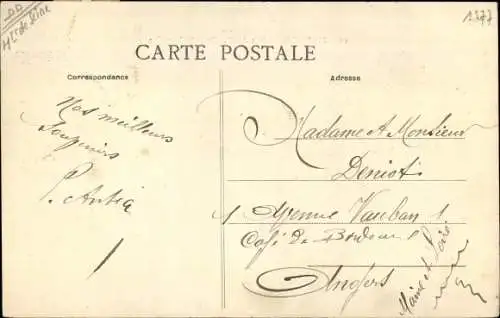 DD
Hts de Seine
1377
CARTE POSTALE
Correspondance
Adresse
Nos meilleurs
Souvenirs
P.
Madame & Monsieur
Deniot
1 Avenue Vauban 1
Café de
Angers
Maine et Loire